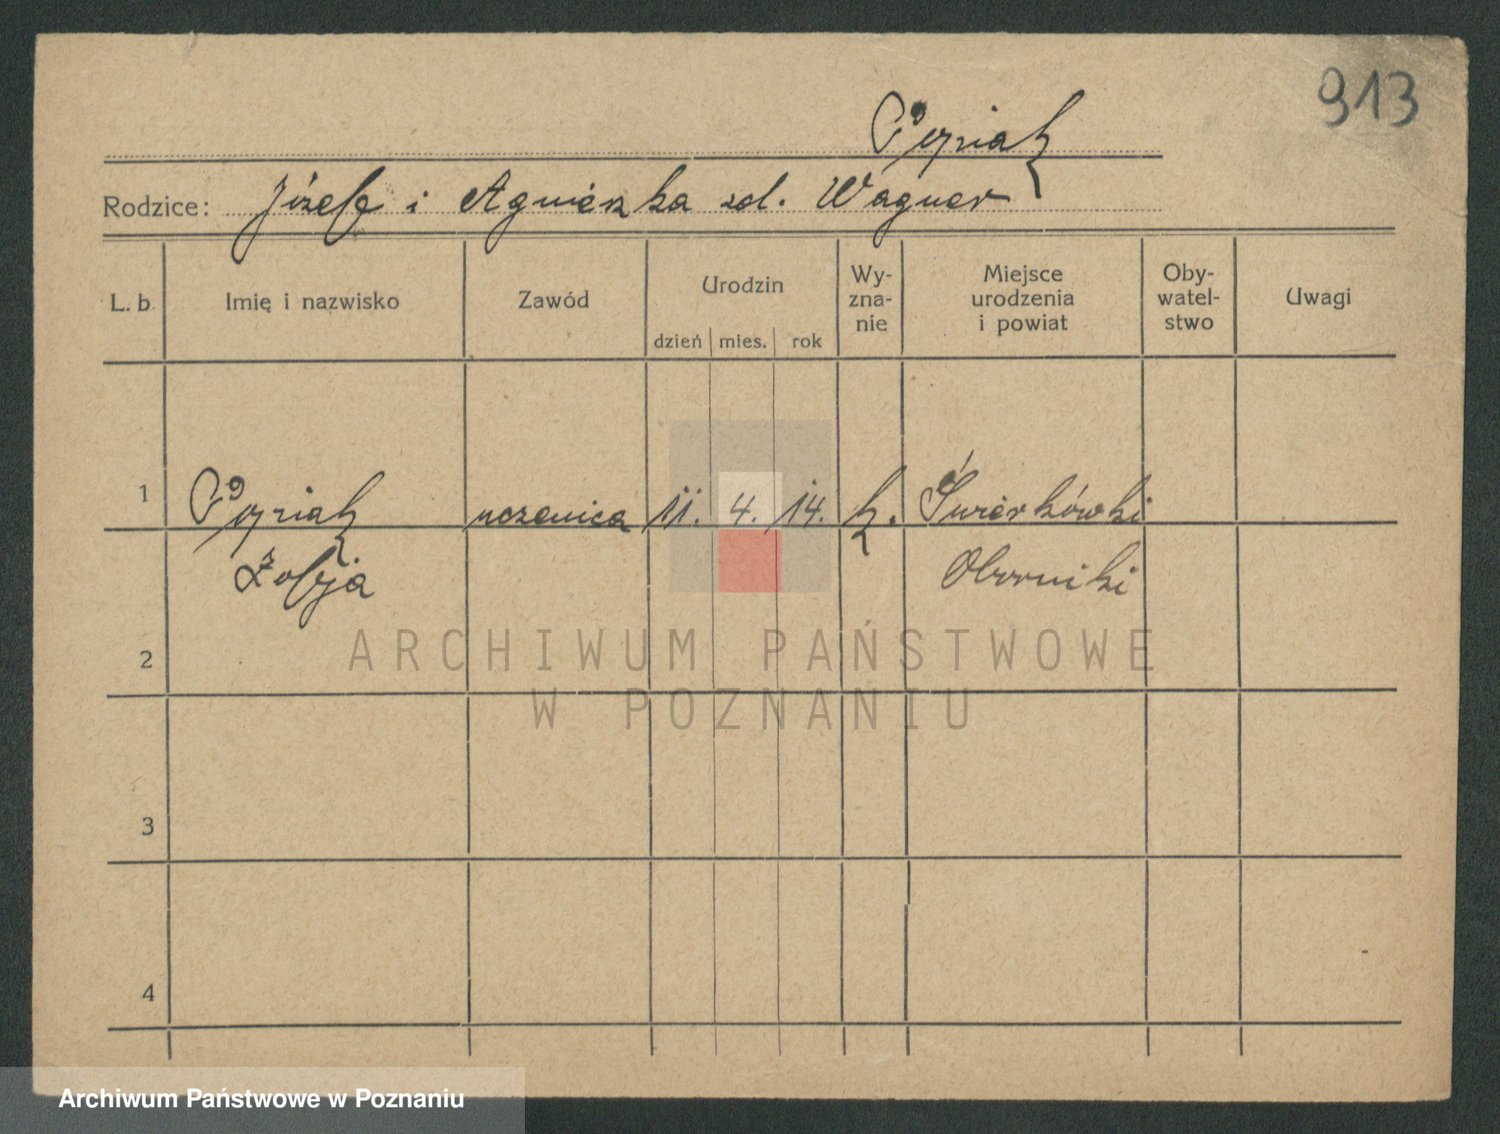 913
Pyziak
Rodzice: Józef i Agnieszka zd. Wagner
L. b. Imię i nazwisko Zawód Urodzin dzień mies. rok Wy- zna- nie Miejsce urodzenia i powiat Oby- watel- stwo Uwagi
1 Pyziak uczenica 11. 4. 14. k. Świerkówki
Zofja Oborniki
2
ARCHIWUM PAŃSTWOWE
W POZNANIU
3
4
Archiwum Państwowe w Poznaniu